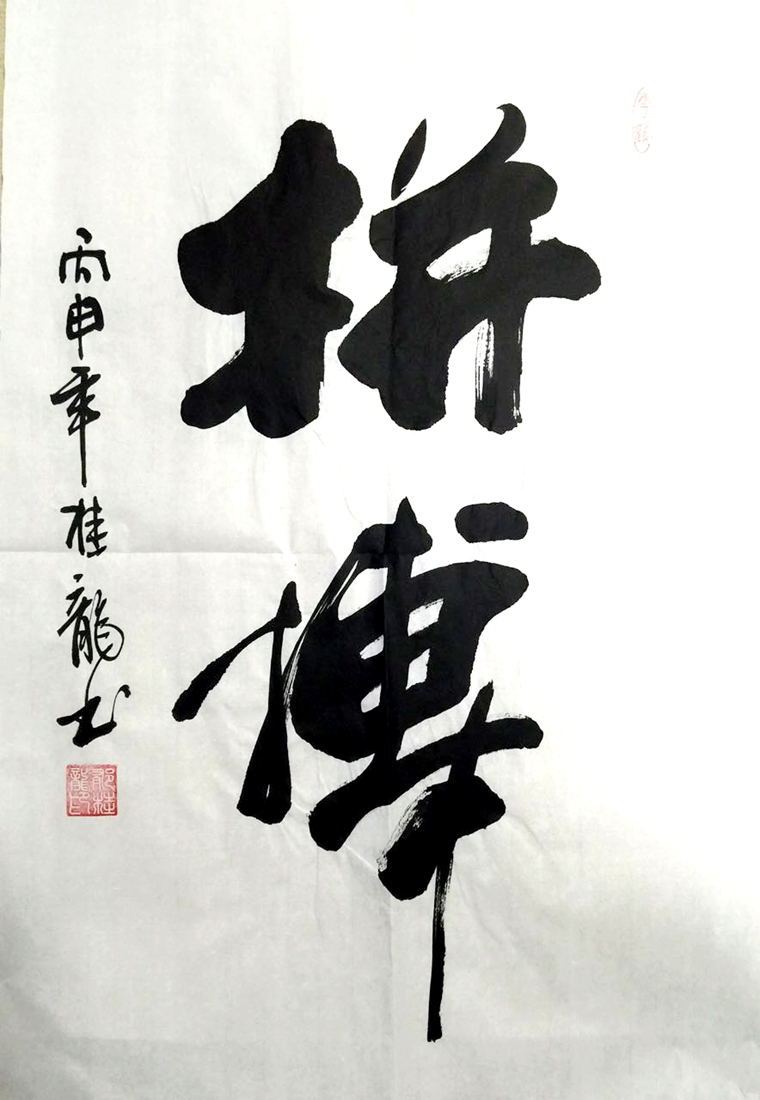 拼搏
丙申年桂龍书